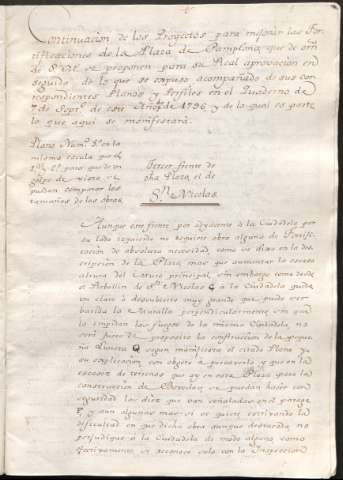 Continuacion de los Proyectos para mejorar las For
tificaciones de la Plaza de Pamplona, que de orn
de S. M. se proponen para su Real aprovacion en
seguida de lo que se expuso acompañado de sus cor
respondientes Planos y Perfiles en el Quaderno de
7 de Septre de este Año de 1796 y de lo qual es parte
lo que aqui se manifestará.
Plano Num.º 5.º en la
misma escala que el
para que de un
golpe de vista se
puedan comparar los
tamaños de las obras
Tercer frente de
dha Plaza el de
Sn Nicolas
Aunque este frente por adyacente a la Ciudadela por
su lado izquierdo no requiere obra alguna de Fortifi
cacion de absoluta necesidad, como se dixo en la des
cripcion de la Plaza, mas que aumentar la escasa
altura del Cuerpo principal, sin embargo como desde
el Rebellin de Sn Nicolas G a la Ciudadela queda
un claro o descubierto muy grande que puede ser
batida la Muralla perpendicularmente sin que
lo impidan los fuegos de la misma Ciudadela, no
será fuera de proposito la construccion de la peque
ña Luneta Q segun manifiesta el citado Plano y
su explicacion con objeto a precaverlo y que en la
escasez de terrenos que ay en esta Plaza para la
construccion de Bovedas, se puedan hacer con
seguridad las diez que van señaladas en el parage
P, y aun algunas mas si se quiere estrivando la
dificultad en que dicha obra aunque destacada no
perjudique a la Ciudadela de modo alguno, como
efectivamente se reconoce solo con la Inspeccion